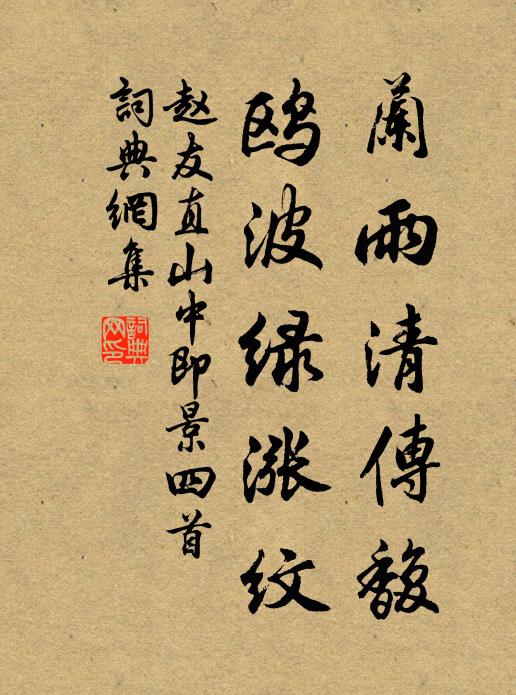 蘭雨清傳馥
鸥波绿漲纹
赵友直山中即景四首
詞典網集
詞典網印